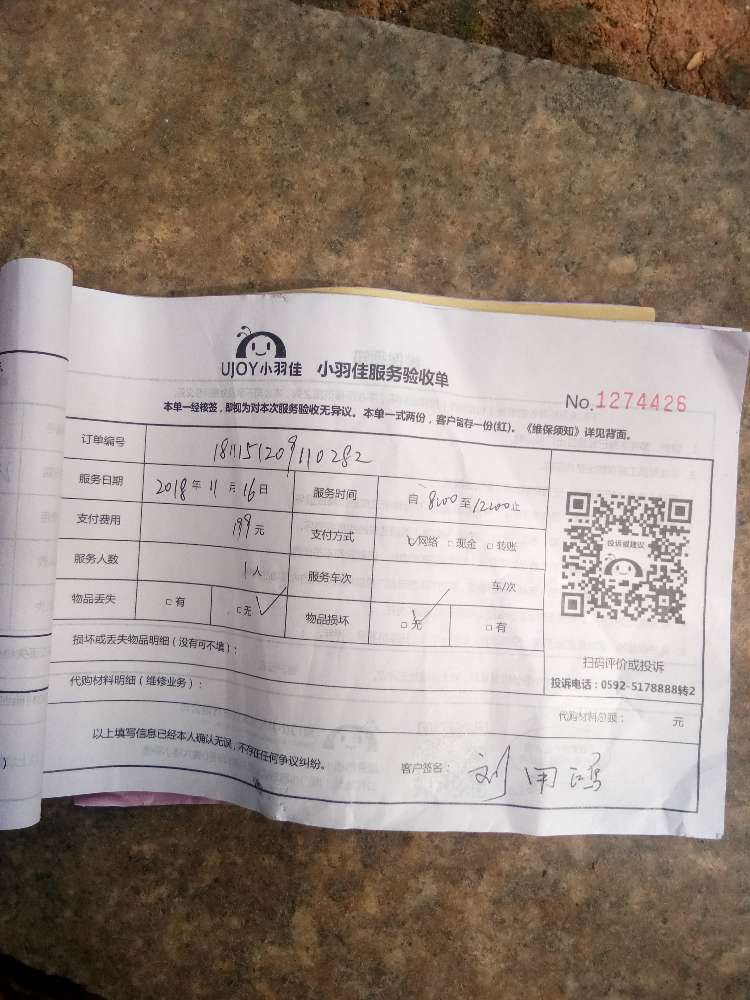 UJOY小羽佳 小羽佳服务验收单
No.1274426
本单一经核签,即视为对本次服务验收无异议。本单一式两份,客户留存一份(红)。《维保须知》详见背面。
订单编号 1811151209110282
服务日期 2018年11月16日 服务时间 自8:00至12:00止
支付费用 199元 支付方式 网络 □现金 □转账
服务人数 1人 服务车次 车/次
物品丢失 □有 □无 物品损坏 □无 □有
投诉或建议
扫码评价或投诉
投诉电话:0592-5178888转2
损坏或丢失物品明细(没有可不填):
代购材料明细(维修业务):
代购材料总额: 元
以上填写信息已经本人确认无误,不存在任何争议纠纷。
客户签名: 刘用鸿